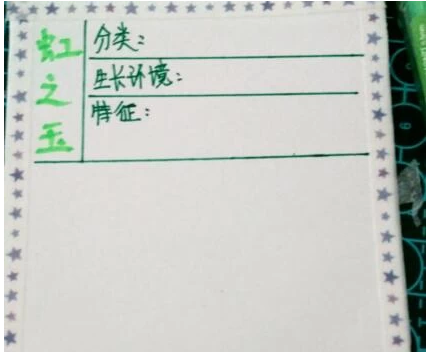 虹之玉
分类：
生长环境：
特征：